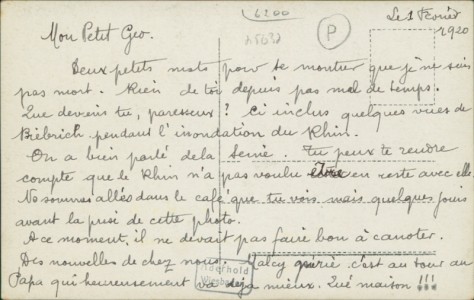 6200
15032
P
Le 1 Février
1920
Mon Petit Geo.
Deux petits mots pour te montrer que je ne suis
pas mort. Rien de toi depuis pas mal de temps.
Que deviens tu, paresseux ? Ci inclus quelques vues de
Biebrich pendant l'inondation du Rhin.
On a bien parlé de la Seine. Tu peux te rendre
compte que le Rhin n'a pas voulu être en reste avec elle.
Nous sommes allés dans le café que tu vois mais quelques jours
avant la prise de cette photo.
A ce moment, il ne devait pas faire bon à canoter.
Des nouvelles de chez nous. guérie c'est au tour du
Papa qui heureusement va déjà mieux. Qué maison !!!